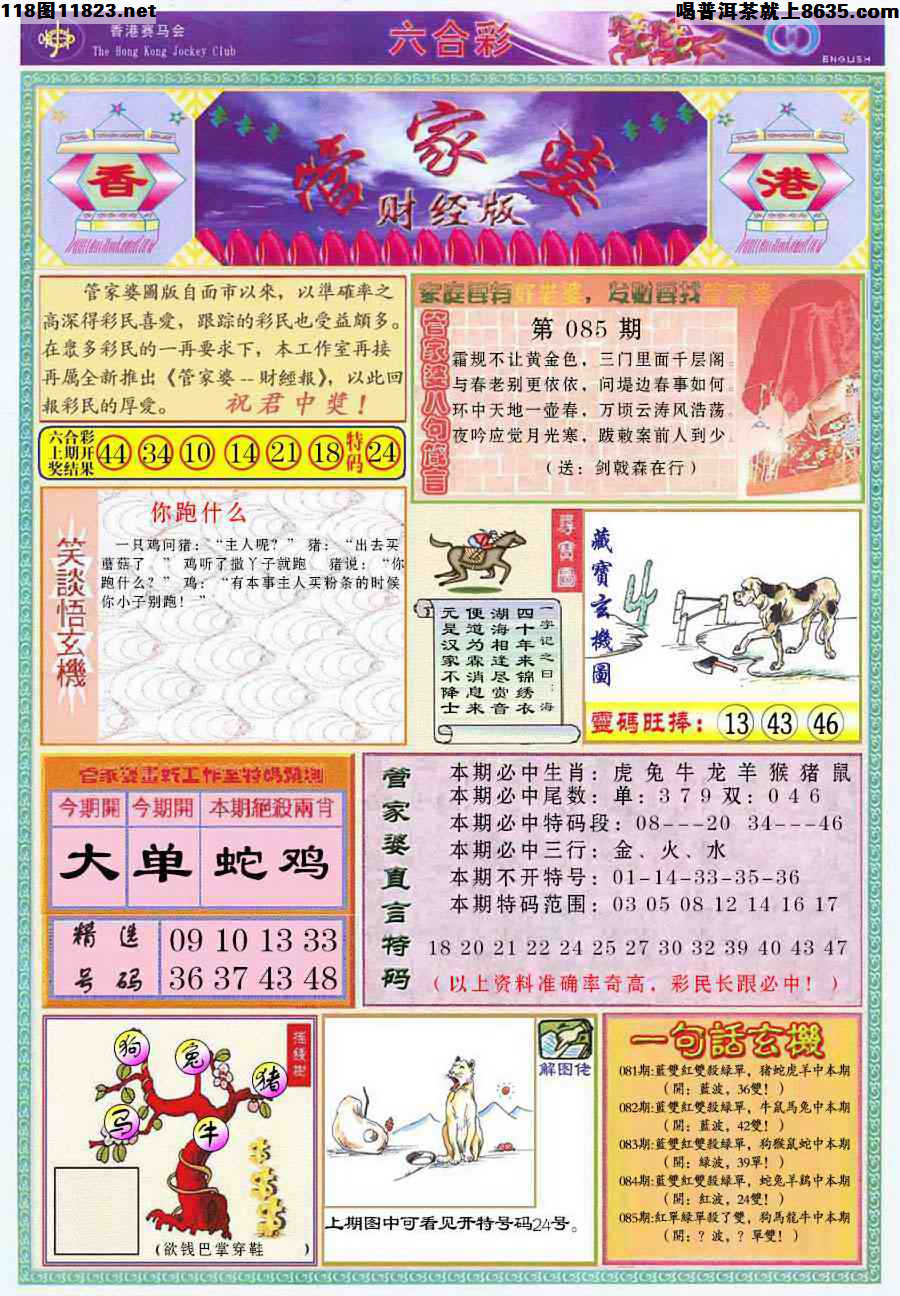 118图11823.net
喝普洱茶就上8635.com
香港赛马会
The Hong Kong Jockey Club
六合彩
ENGLISH
香
管家婆
财经版
港
管家婆圖版自面市以來，以準確率之
高深得彩民喜愛，跟踪的彩民也受益頗多。
在眾多彩民的一再要求下，本工作室再接
再厲全新推出《管家婆--財經報》，以此回
報彩民的厚愛。 祝君中奬！
六合彩
上期开
奖结果
44 34 10 14 21 18 特码 24
家庭要有好老婆，发财要找管家婆
管家婆八句箴言
第 085 期
霜规不让黄金色，三门里面千层阁。
与春老别更依依，问堤边春事如何。
环中天地一壶春，万顷云涛风浩荡。
夜吟应觉月光寒，跋敕案前人到少。
（送：剑戟森在行）
笑談悟玄機
你跑什么
一只鸡问猪：“主人呢？” 猪：“出去买
蘑菇了。” 鸡听了撒丫子就跑。 猪说：“你
跑什么？” 鸡：“有本事主人买粉条的时候
你小子别跑！”
尋寶圖
一字记之曰：海
四十年来锦绣衣
湖海相逢尽赏音
便道为霖消息来
元是汉家不降士
藏寶玄機圖
靈碼旺捧：13 43 46
管家婆畫新工作室特碼預測
今期開 今期開 本期絕殺兩肖
大 单 蛇鸡
精选
号码
09 10 13 33
36 37 43 48
管家婆直言特码
本期必中生肖：虎 兔 牛 龙 羊 猴 猪 鼠
本期必中尾数：单：3 7 9 双：0 4 6
本期必中特码段：08---20 34---46
本期必中三行：金、火、水
本期不开特号：01-14-33-35-36
本期特码范围：03 05 08 12 14 16 17
18 20 21 22 24 25 27 30 32 39 40 43 47
（以上资料准确率奇高，彩民长跟必中！）
摇錢樹
狗
兔
猪
马
牛
（欲钱巴掌穿鞋 ）
解图佬
上期图中可看见开特号码24号。
一句話玄機
081期:藍雙紅雙殺綠單，猪蛇虎羊中本期
（開：藍波，36雙！）
082期:藍雙紅雙殺綠單，牛鼠馬兔中本期
（開：藍波，42雙！）
083期:藍雙紅雙殺綠單，狗猴鼠蛇中本期
（開：綠波，39單！）
084期:藍雙紅雙殺綠單，蛇兔羊鷄中本期
（開：紅波，24雙！）
085期:紅單綠單殺了雙，狗馬龍牛中本期
（開：? 波，? 單雙！）